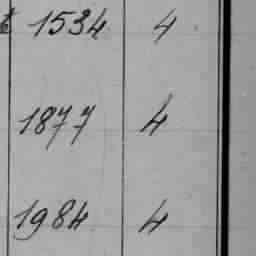 1534 4
1877 4
1984 4